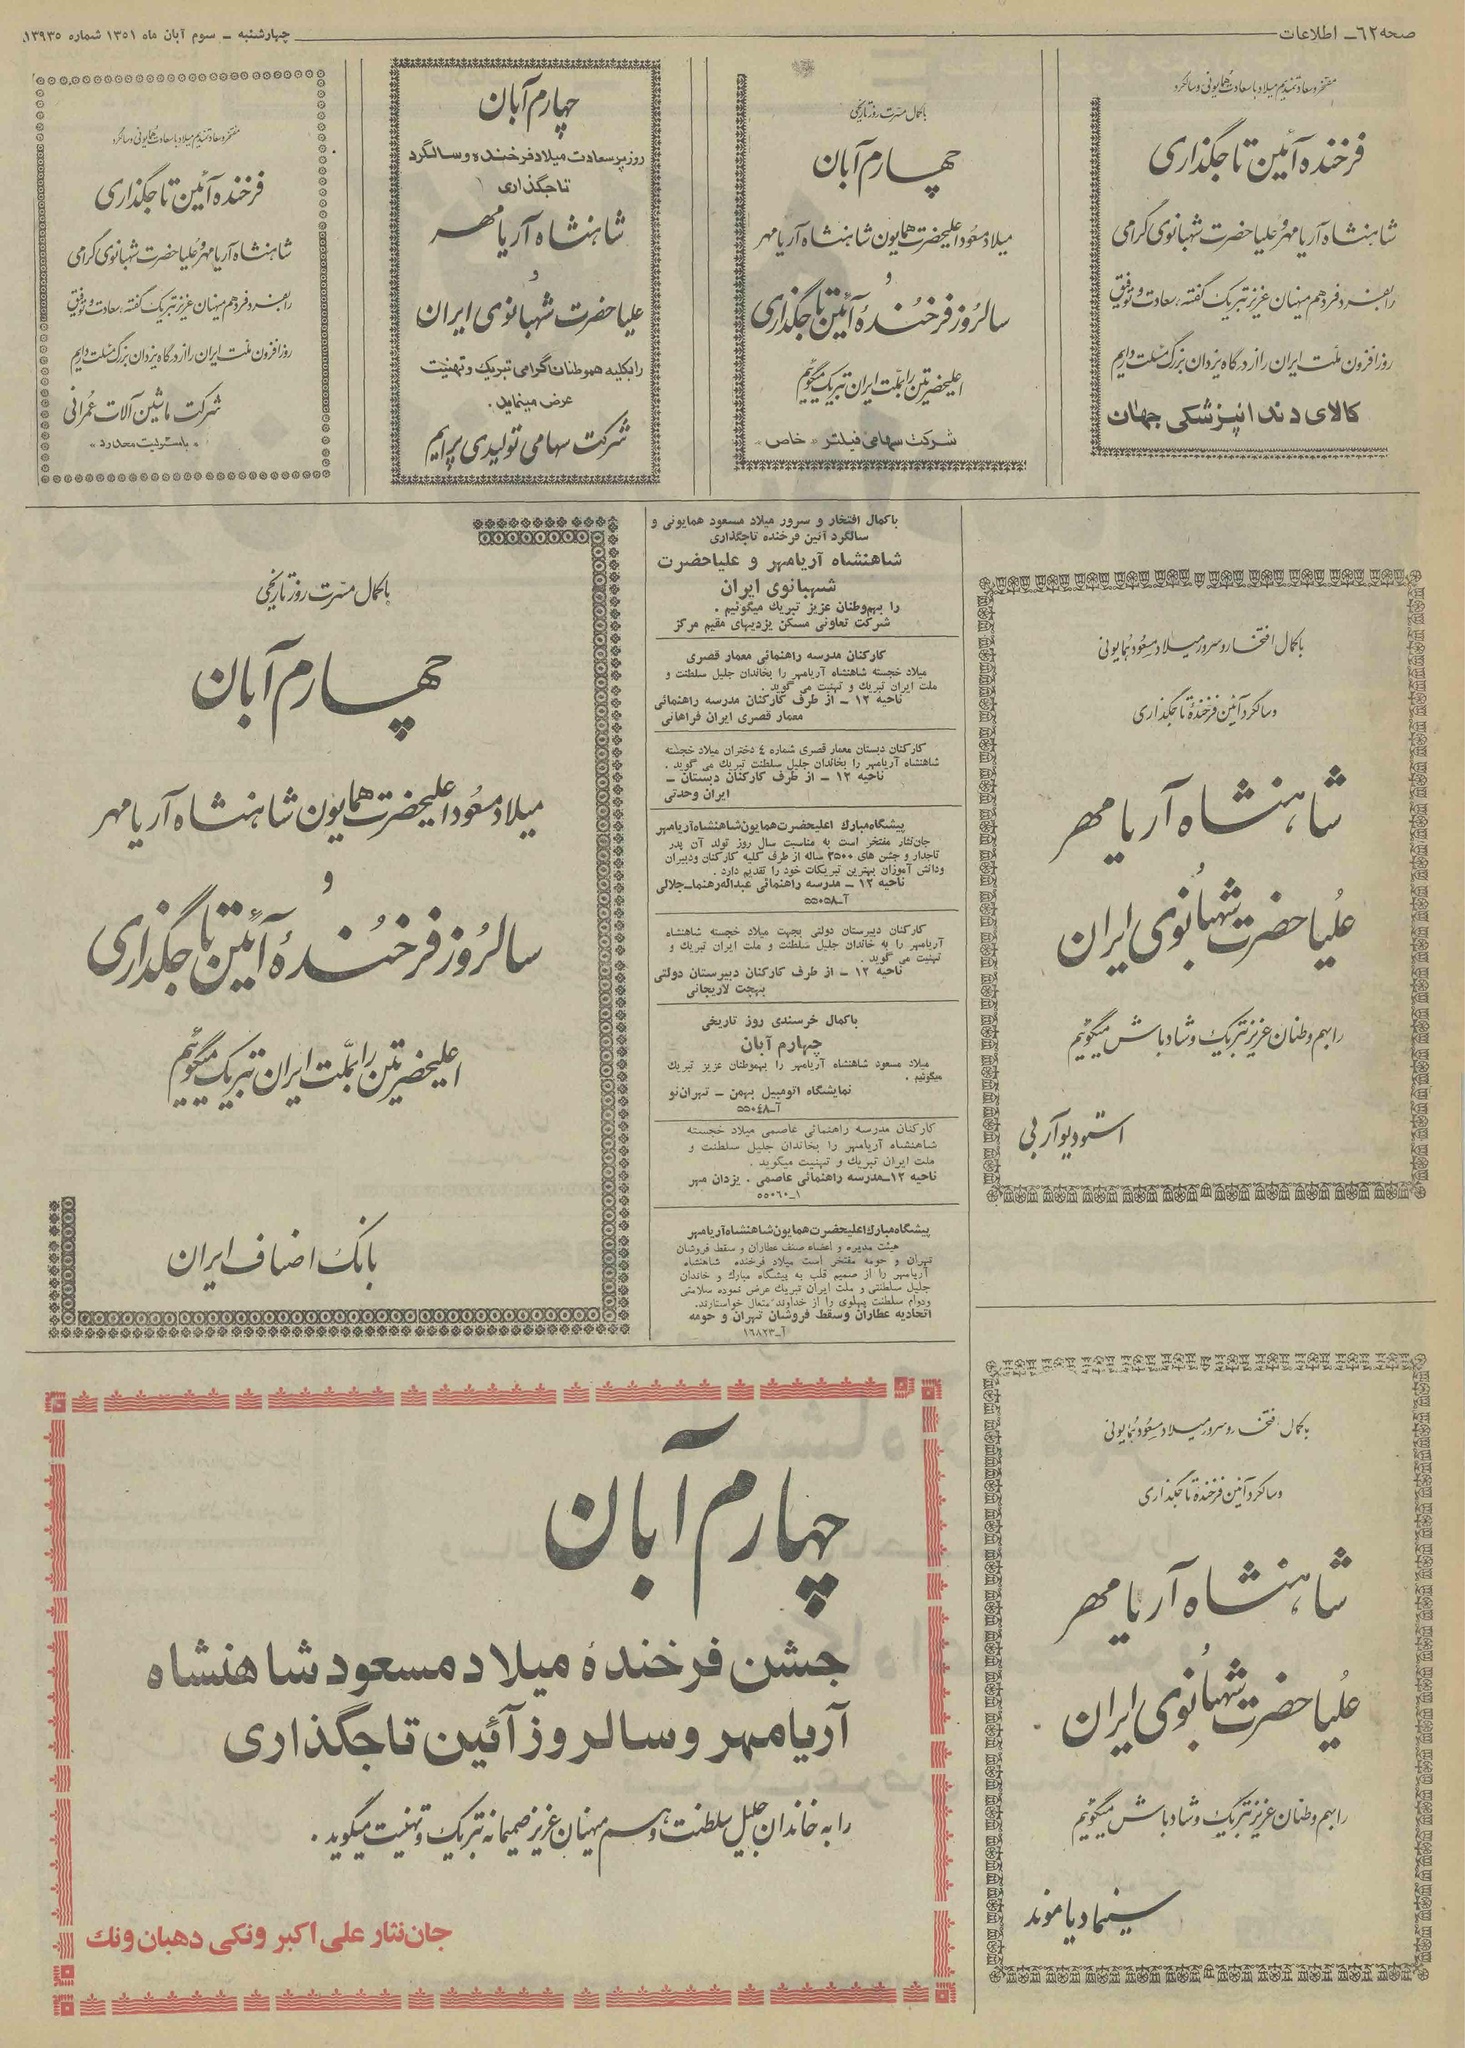 صفحه ۶۲ـ اطلاعات
چهارشنبه ـ سوم آبان ماه ۱۳۵۱ شماره ۱۳۹۳۵
مفتخر و سعادتمندیم میلاد با سعادت همایونی و سالگرد
فرخنده آئین تاجگذاری
شاهنشاه آریامهر و علیاحضرت شهبانوی گرامی
را بفرد فرد هم میهنان عزیز تبریک گفته، سعادت و توفیق
روزافزون ملت ایران را از درگاه یزدان بزرگ مسئلت داریم
کالای دندانپزشکی جهان
با کمال مسرت روز تاریخی
چهارم آبان
میلاد مسعود اعلیحضرت همایون شاهنشاه آریامهر
و
سالروز فرخندهٔ آئین تاجگذاری
اعلیحضرتین را بملت ایران تبریک میگوییم
شرکت سهامی فیلتر «خاص»
چهارم آبان
روز پر سعادت میلاد فرخنده و سالگرد
تاجگذاری
شاهنشاه آریامهر
و
علیاحضرت شهبانوی ایران
را بکلیه هموطنان گرامی تبریک و تهنیت
عرض مینماید.
شرکت سهامی تولیدی پریم
مفتخر و سعادتمندیم میلاد با سعادت همایونی و سالگرد
فرخنده آئین تاجگذاری
شاهنشاه آریامهر و علیاحضرت شهبانوی گرامی
را بفرد فرد هم میهنان عزیز تبریک گفته، سعادت و توفیق
روزافزون ملت ایران را از درگاه یزدان بزرگ مسئلت داریم
شرکت ماشین آلات عمرانی
« با مسئولیت محدود »
با کمال افتخار و سرور میلاد مسعود همایونی
و سالگرد آئین فرخندهٔ تاجگذاری
شاهنشاه آریامهر
و
علیاحضرت شهبانوی ایران
را بهم وطنان عزیز تبریک و شادباش میگوئیم
استودیو آر بی
باکمال افتخار و سرور میلاد مسعود همایونی و
سالگرد آئین فرخنده تاجگذاری
شاهنشاه آریامهر و علیاحضرت
شهبانوی ایران
را بهم‌وطنان عزیز تبریک میگوئیم .
شرکت تعاونی مسکن یزدیهای مقیم مرکز
کارکنان مدرسه راهنمائی معمار قصری
میلاد خجسته شاهنشاه آریامهر را بخاندان جلیل سلطنت و
ملت ایران تبریک و تهنیت می گوید .
ناحیه ۱۲ ـ از طرف کارکنان مدرسه راهنمائی
معمار قصری ایران فراهانی
کارکنان دبستان معمار قصری شماره ۴ دختران میلاد خجسته
شاهنشاه آریامهر را بخاندان جلیل سلطنت تبریک می گوید .
ناحیه ۱۲ ـ از طرف کارکنان دبستان ـ
ایران وحدتی
پیشگاه مبارک اعلیحضرت همایون شاهنشاه آریامهر
جان‌نثار مفتخر است به مناسبت سال روز تولد آن پدر
تاجدار و جشن های ۲۵۰۰ ساله از طرف کلیه کارکنان ودبیران
ودانش آموزان بهترین تبریکات خود را تقدیم دارد .
ناحیه ۱۲ ـ مدرسه راهنمائی عبداله رهنما ـ جلالی
آـ۵۵۰۵۸
کارکنان دبیرستان دولتی بجهت میلاد خجسته شاهنشاه
آریامهر را به خاندان جلیل سلطنت و ملت ایران تبریک و
تهنیت می گوید .
ناحیه ۱۲ ـ از طرف کارکنان دبیرستان دولتی
بهجت لاریجانی
باکمال خرسندی روز تاریخی
چهارم آبان
میلاد مسعود شاهنشاه آریامهر را بهموطنان عزیز تبریک
میگوئیم .
نمایشگاه اتومبیل بهمن ـ تهران‌نو
آـ۵۵۰۴۸
کارکنان مدرسه راهنمائی عاصمی میلاد خجسته
شاهنشاه آریامهر را بخاندان جلیل سلطنت و
ملت ایران تبریک و تهنیت میگوید .
ناحیه ۱۲ـمدرسه راهنمائی عاصمی . یزدان مهر
۱ـ۵۵۰۶۰
پیشگاه مبارک اعلیحضرت همایون شاهنشاه آریامهر
هیئت مدیره و اعضاء صنف عطاران و سقط فروشان
تهران و حومه مفتخر است میلاد فرخنده شاهنشاه
آریامهر را از صمیم قلب به پیشگاه مبارک و خاندان
جلیل سلطنتی و ملت ایران تبریک عرض نموده سلامتی
ودوام سلطنت پهلوی را از خداوند متعال خواستارند.
اتحادیه عطاران وسقط فروشان تهران و حومه
آـ۱۶۸۲۳
با کمال مسرت روز تاریخی
چهارم آبان
میلاد مسعود اعلیحضرت همایون شاهنشاه آریامهر
و
سالروز فرخندهٔ آئین تاجگذاری
اعلیحضرتین را بملت ایران تبریک میگوییم
بانک اصناف ایران
با کمال افتخار و سرور میلاد مسعود همایونی
و سالگرد آئین فرخندهٔ تاجگذاری
شاهنشاه آریامهر
و
علیاحضرت شهبانوی ایران
را بهم وطنان عزیز تبریک و شادباش میگوئیم
سینما دیاموند
چهارم آبان
جشن فرخندهٔ میلاد مسعود شاهنشاه
آریامهر و سالروز آئین تاجگذاری
را به خاندان جلیل سلطنت و هم میهنان عزیز صمیمانه تبریک و تهنیت میگوید.
جان‌نثار علی اکبر ونکی دهبان ونک